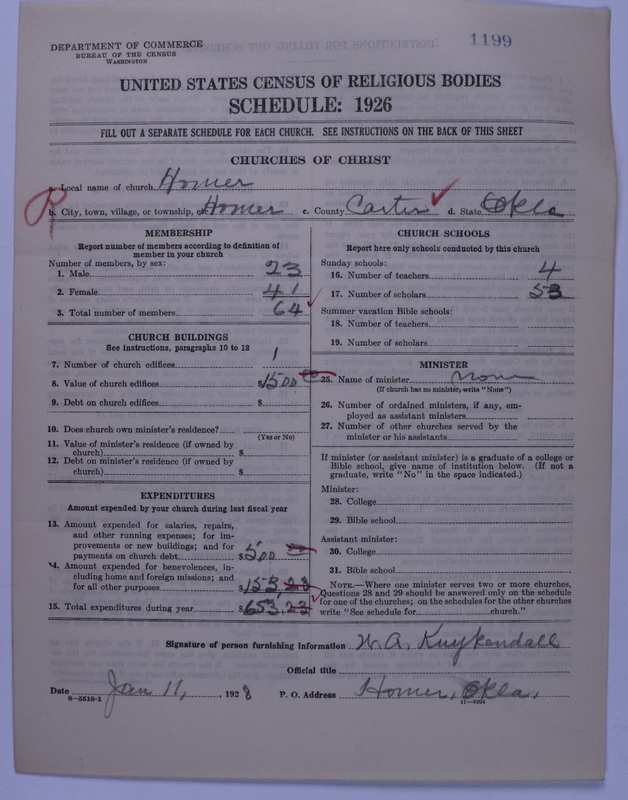 1199
DEPARTMENT OF COMMERCE
BUREAU OF THE CENSUS
WASHINGTON
UNITED STATES CENSUS OF RELIGIOUS BODIES
SCHEDULE: 1926
FILL OUT A SEPARATE SCHEDULE FOR EACH CHURCH. SEE INSTRUCTIONS ON THE BACK OF THIS SHEET
CHURCHES OF CHRIST
a. Local name of church Homer
R
b. City, town, village, or township, etc. Homer c. County Carter d. State Okla
MEMBERSHIP
Report number of members according to definition of
member in your church
Number of members, by sex:
1. Male 23
2. Female 41
3. Total number of members 64
CHURCH BUILDINGS
See instructions, paragraphs 10 to 12
7. Number of church edifices 1
8. Value of church edifices $1500
9. Debt on church edifices $
10. Does church own minister's residence?
(Yes or No)
11. Value of minister's residence (if owned by
church) $
12. Debt on minister's residence (if owned by
church) $
EXPENDITURES
Amount expended by your church during last fiscal
year
13. Amount expended for salaries, repairs,
and other running expenses; for im-
provements or new buildings; and for
payments on church debt $500
14. Amount expended for benevolences, in-
cluding home and foreign missions; and
for all other purposes $153.23
15. Total expenditures during year $653.23
CHURCH SCHOOLS
Report here only schools conducted by this church
Sunday schools:
16. Number of teachers 4
17. Number of scholars 53
Summer vacation Bible schools:
18. Number of teachers
19. Number of scholars
MINISTER
25. Name of minister None
(If church has no minister, write "None")
26. Number of ordained ministers, if any, em-
ployed as assistant ministers
27. Number of other churches served by the
minister or his assistants
If minister (or assistant minister) is a graduate of a college or
Bible school, give name of institution below. (If not a
graduate, write "No" in the space indicated.)
Minister:
28. College
29. Bible school
Assistant minister:
30. College
31. Bible school
NOTE.—Where one minister serves two or more churches,
Questions 28 and 29 should be answered only on the schedule
for one of the churches; on the schedules for the other churches
write "See schedule for church."
Signature of person furnishing information W. A. Kuykendall
Official title
Date Jan 11, 1928 P. O. Address Homer, Okla,
8—5518-1
11—9204